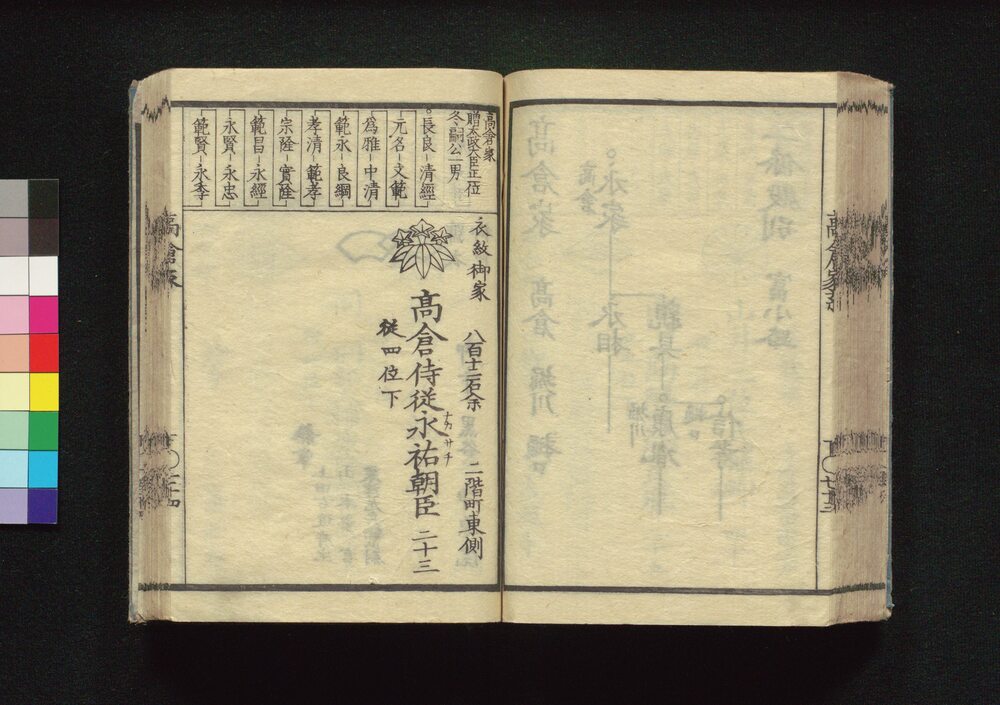 高倉家
贈太政大臣正一位
冬嗣公一男
長良-清經
元名-文範
為雅-中清
範永-良綱
孝清-範孝
宗隆-實隆
範昌-永經
永賢-永忠
範賢-永季
衣紋御家
八百十二石余
二階町東側
高倉侍従永祜朝臣 二十三
ナカサチ
従四位下
高倉家